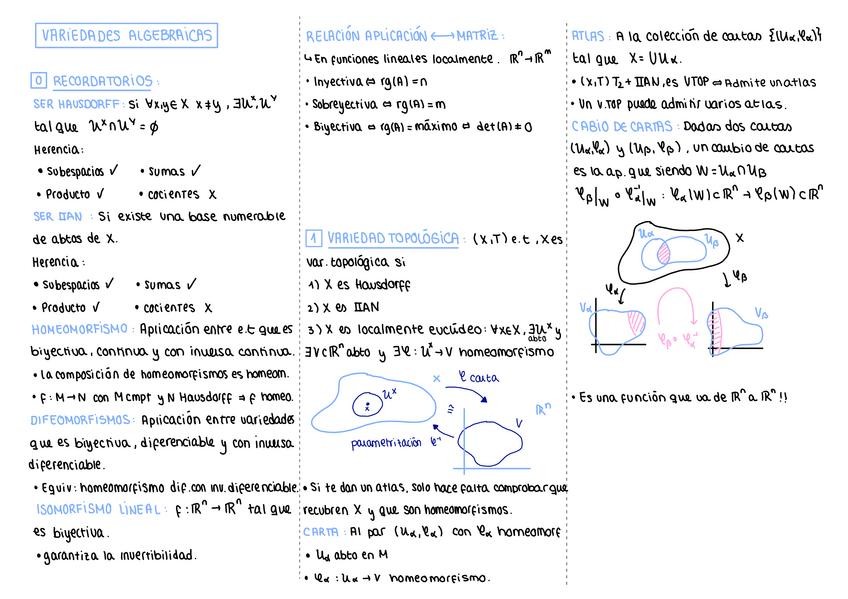 VARIEDADES ALGEBRAICAS
0 RECORDATORIOS:
SER HAUSDORFF: Si ∀x,y∈X x≠y, ∃Uˣ,Uʸ
tal que Uˣ∩Uʸ=∅
Herencia:
• Subespacios ✓ • Sumas ✓
• Producto ✓ • cocientes X
SER IIAN: Si existe una base numerable
de abtos de X.
Herencia:
• Subespacios ✓ • Sumas ✓
• Producto ✓ • cocientes X
HOMEOMORFISMO: Aplicación entre e.t que es
biyectiva, continua y con inversa continua.
• la composición de homeomorfismos es homeom.
• f: M→N con M cmpt y N Hausdorff ⇒ f homeo.
DIFEOMORFISMOS: Aplicación entre variedades
que es biyectiva, diferenciable y con inversa
diferenciable.
• Equiv: homeomorfismo dif. con inv. diferenciable.
ISOMORFISMO LINEAL: f: ℝⁿ → ℝⁿ tal que
es biyectiva.
• garantiza la invertibilidad.
RELACIÓN APLICACIÓN ⟷ MATRIZ:
↳ En funciones lineales localmente. ℝⁿ→ℝᵐ
• Inyectiva ⇔ rg(A)=n
• Sobreyectiva ⇔ rg(A)=m
• Biyectiva ⇔ rg(A)=máximo ⇔ det(A)≠0
1 VARIEDAD TOPOLÓGICA: (X,T) e.t, X es
var. topológica si
1) X es Hausdorff
2) X es IIAN
3) X es localmente euclídeo: ∀x∈X, ∃Uˣ y
abto
∃V⊂ℝⁿ abto y ∃φ: Uˣ→V homeomorfismo
X φ carta
Uˣ
x
≅
ℝⁿ
V
parametrización φ⁻¹
• Si te dan un atlas, solo hace falta comprobar que
recubren X y que son homeomorfismos.
CARTA: Al par (Uα,φα) con φα homeomorf
• Uα abto en M
• φα: Uα→V homeomorfismo.
ATLAS: A la colección de cartas {(Uα,φα)}
tal que X=∪Uα.
• (X,T) T₂ + IIAN, es VTOP ⇔ Admite un atlas
• Un V.TOP puede admitir varios atlas.
CABIO DE CARTAS: Dadas dos cartas
(Uα,φα) y (Uβ,φβ), un cambio de cartas
es la ap. que siendo W=Uα∩Uβ
φβ|W ∘ φα⁻¹|W : φα(W)⊂ℝⁿ → φβ(W)⊂ℝⁿ
Uα Uβ X
φα φβ
Vα Vβ
φβ∘φα⁻¹
• Es una función que va de ℝⁿ a ℝⁿ!!